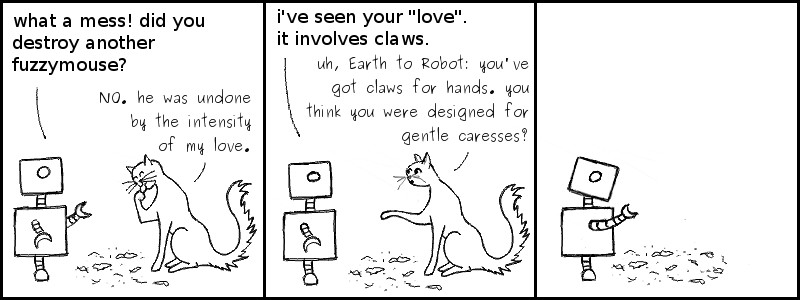 what a mess! did you
destroy another
fuzzymouse?
NO. he was undone
by the intensity
of my love.
i've seen your "love".
it involves claws.
uh, Earth to Robot: you've
got claws for hands. you
think you were designed for
gentle caresses?